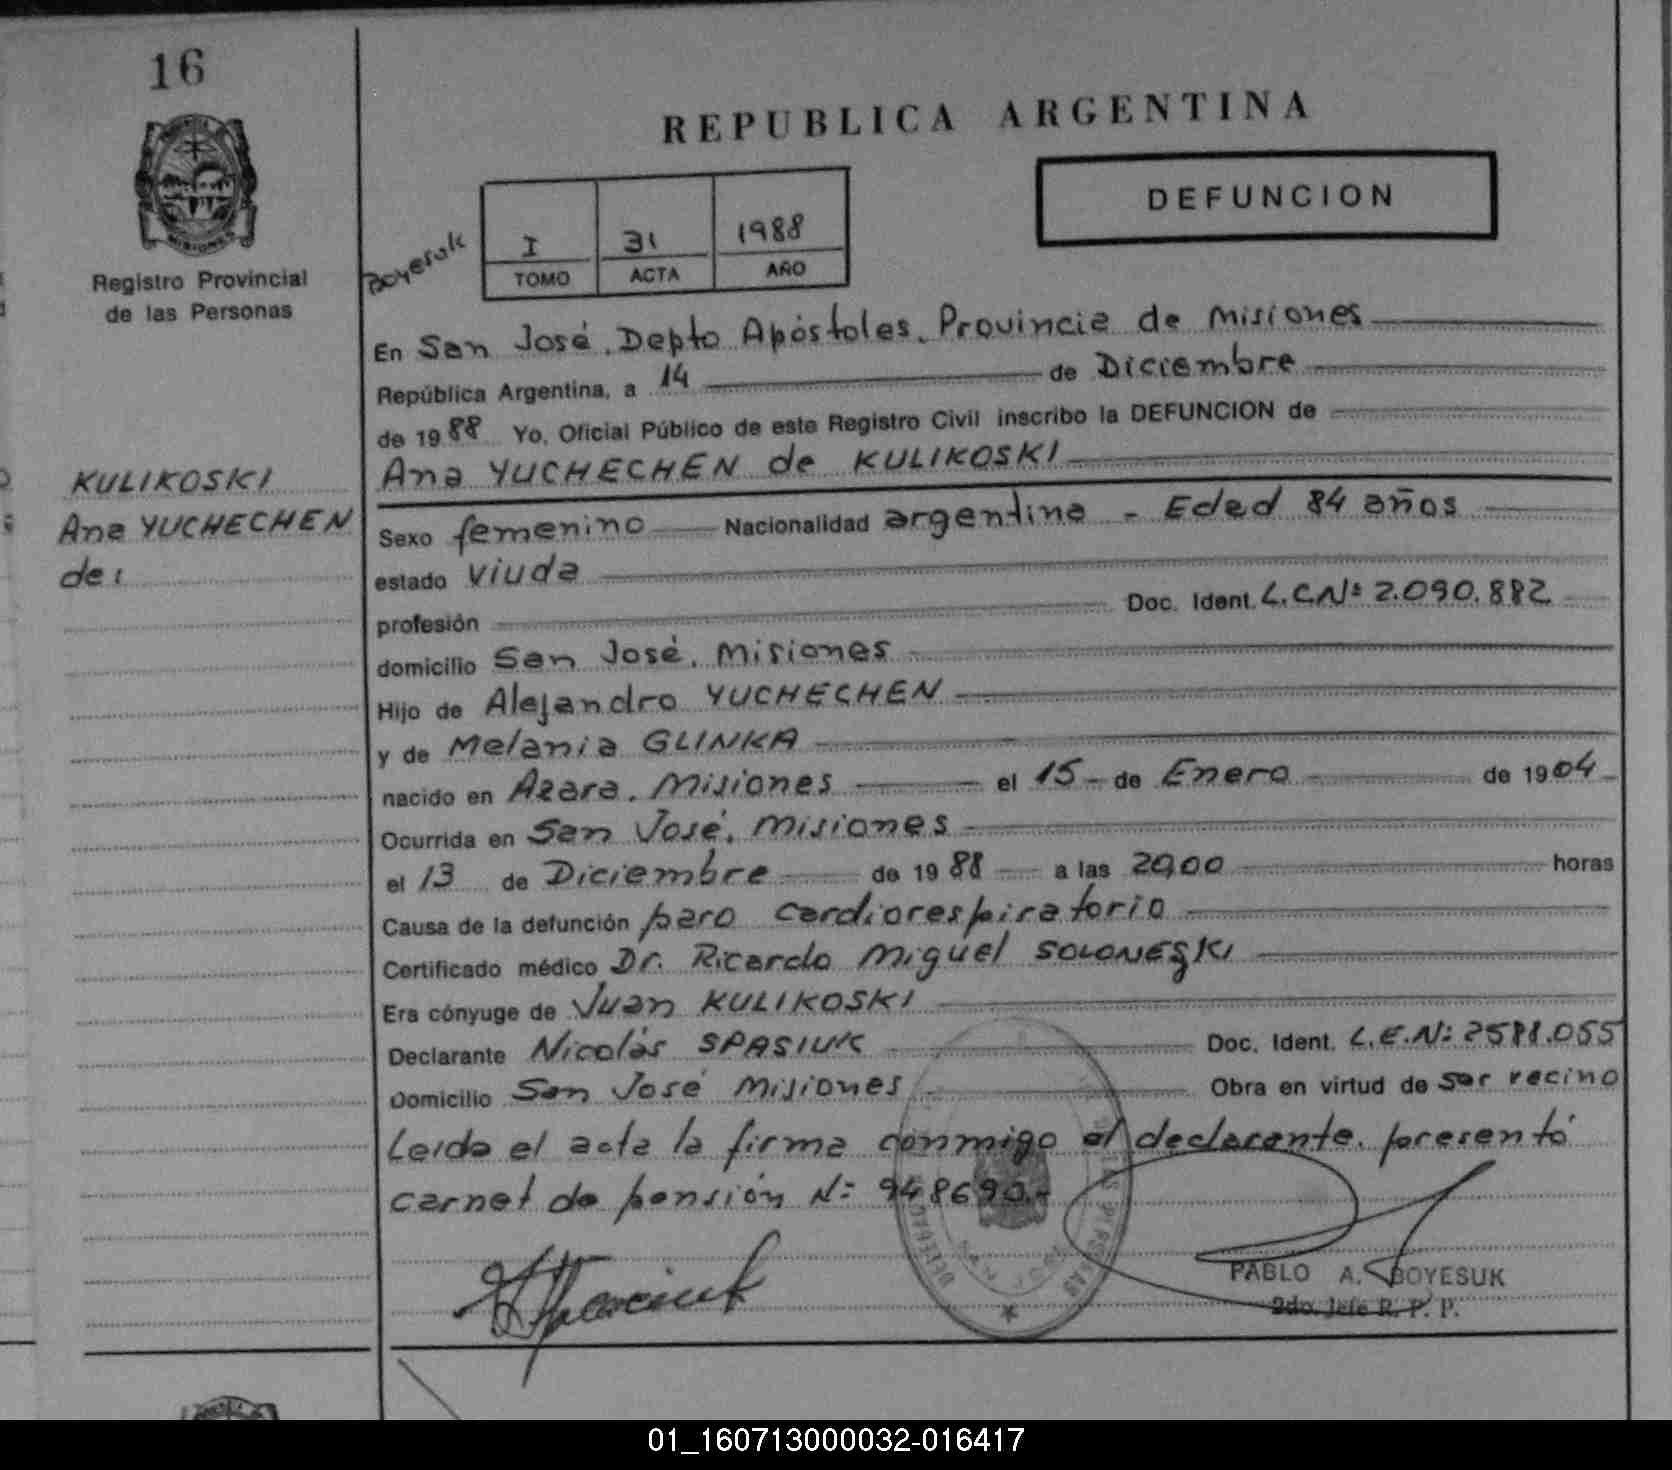 16
REPUBLICA ARGENTINA
DEFUNCION
Registro Provincial
de las Personas
Boyesuk
I 31 1988
TOMO ACTA AÑO
En San José, Depto Apóstoles, Provincia de Misiones
República Argentina, a 14 de Diciembre
de 1988 Yo, Oficial Público de este Registro Civil inscribo la DEFUNCION de
Ana YUCHECHEN de KULIKOSKI
KULIKOSKI
Ana YUCHECHEN
de:
Sexo femenino Nacionalidad argentina - Edad 84 años
estado viuda
profesión Doc. Ident. L.C.Nº 2.090.882
domicilio San José, Misiones
Hijo de Alejandro YUCHECHEN
y de Melania GLINKA
nacido en Azara, Misiones el 15 de Enero de 1904
Ocurrida en San José, Misiones
el 13 de Diciembre de 1988 a las 20,00 horas
Causa de la defunción paro cardiorespiratorio
Certificado médico Dr. Ricardo Miguel SOLONESKI
Era cónyuge de Juan KULIKOSKI
Declarante Nicolás SPASIUK Doc. Ident. L.E.Nº 2581.055
Domicilio San José Misiones Obra en virtud de ser vecino
Leida el acta la firma conmigo el declarante. presentó
carnet de pensión Nº 948690.-
PABLO A. BOYESUK
2do. Jefe R. P. P.
01_160713000032-016417